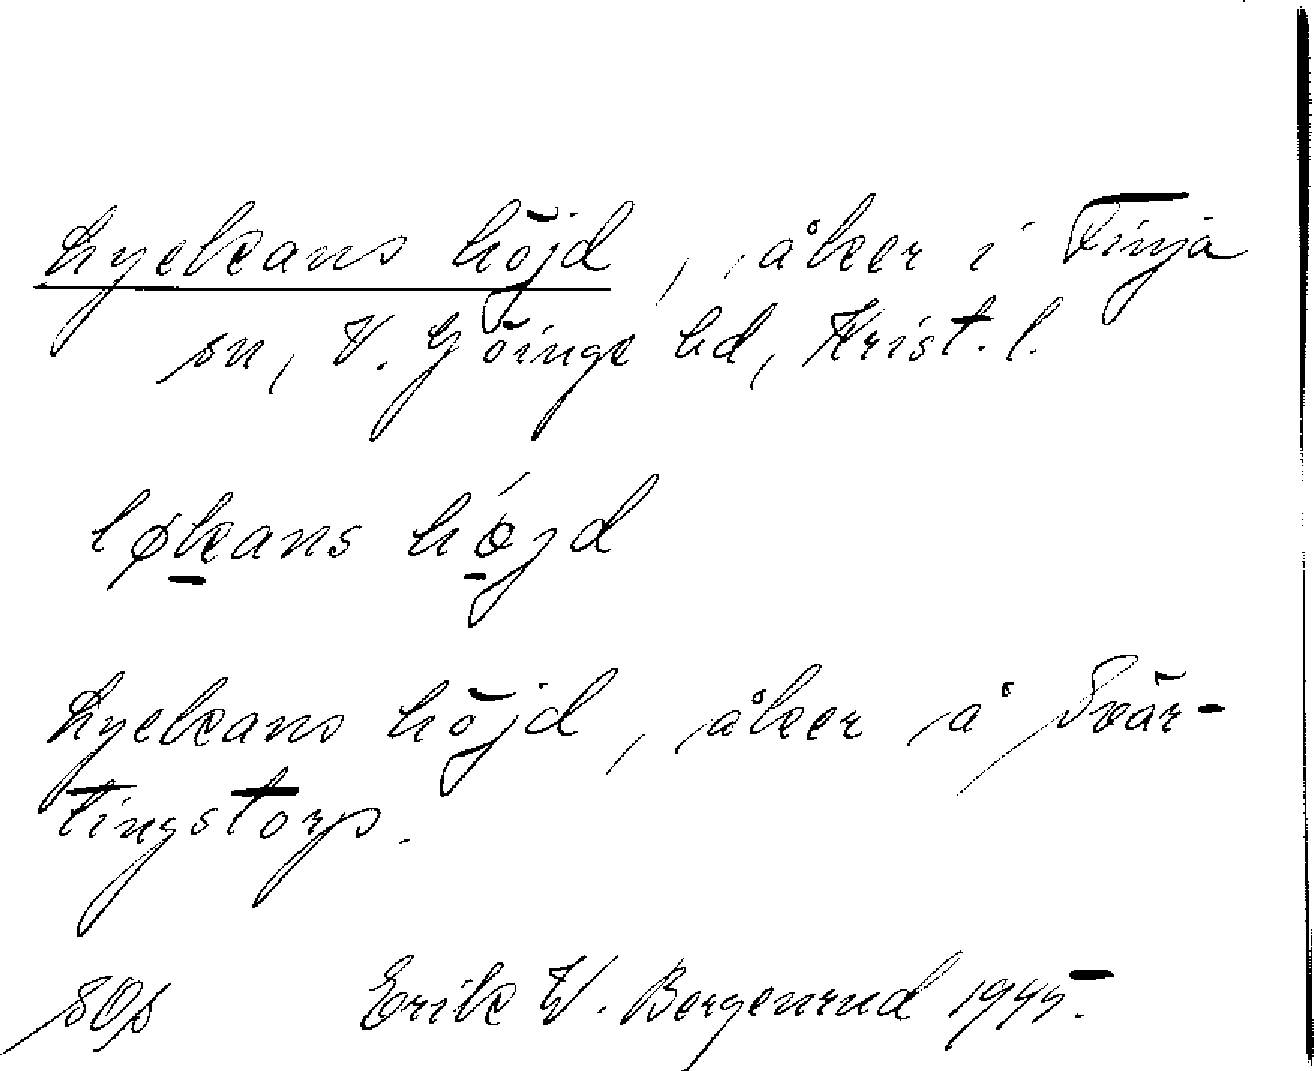 Lyckans höjd, åker i Finja
sn, V. Göinge hd, Krist. l.
løkans höjd
Lyckans höjd, åker å Svär-
tingstorp.
Erik W. Bergenrud 1945.